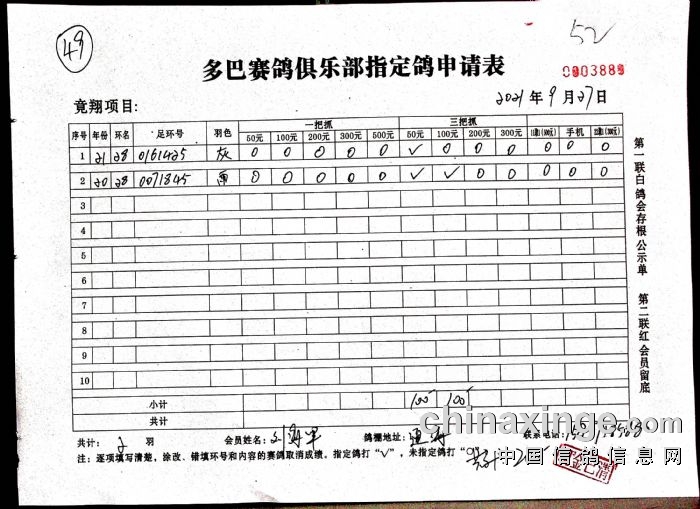 49
52
多巴赛鸽俱乐部指定鸽申请表
0003889
竟翔项目:
2021年9月27日
序号 年份 环名 足环号 羽色 一把抓 三把抓 手机
50元 100元 200元 300元 500元 50元 100元 200元 300元
1 21 28 0161425 灰 0 0 0 0 0 √ 0 0 0 0 0 0
2 20 28 0071845 雨 0 0 0 0 0 √ √ 0 0 0 0 0
3
4
5
6
7
8
9
10
小计 100 100
共计
共计: 2 羽 会员姓名: 刘海军 鸽棚地址: 联系电话:
注:逐项填写清楚,涂改、错填环号和内容的赛鸽取消成绩。指定鸽打“√”,未指定鸽打“0”
第一联白鸽会存根公示单 第二联红会员留底
chinaxinge.com
中国信鸽信息网